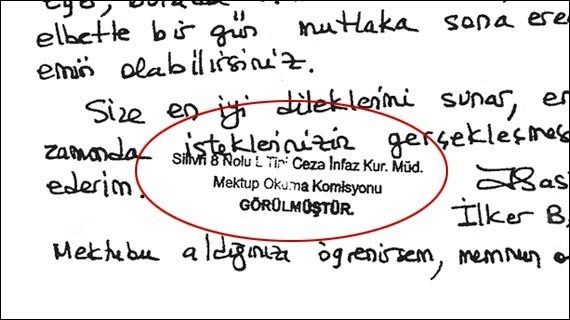 elbette bir gün mutlaka sona
emin olabilirsiniz.
Size en iyi dileklerimi sunar,
zamanda isteklerinizin gerçekleşmes
Silivri 8 Nolu L Tipi Ceza İnfaz Kur. Müd.
ederim.
Mektup Okuma Komisyonu
GÖRÜLMÜŞTÜR.
İlker B
Mektubu aldığınızı öğrenirsem, memnun